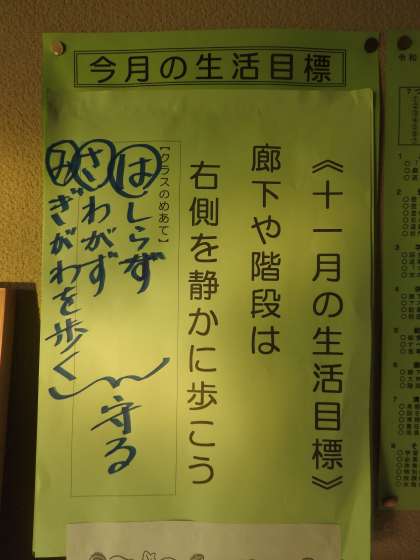 今月の生活目標
《十一月の生活目標》
廊下や階段は
右側を静かに歩こう
【クラスのめあて】
はしらず
さわがず
みぎがわを歩く
守る
令和